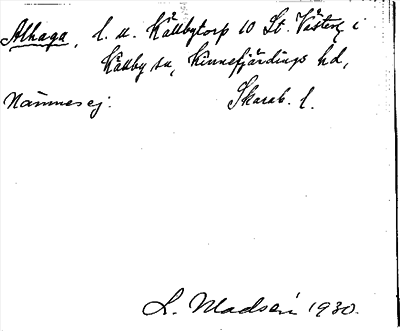 Alhaga, l. u. Källbytorp 10 St. Västerg. i
Källby sn, Kinnefjärdings hd,
Nämnes ej. Skarab. l.
L. Madsén 1930.